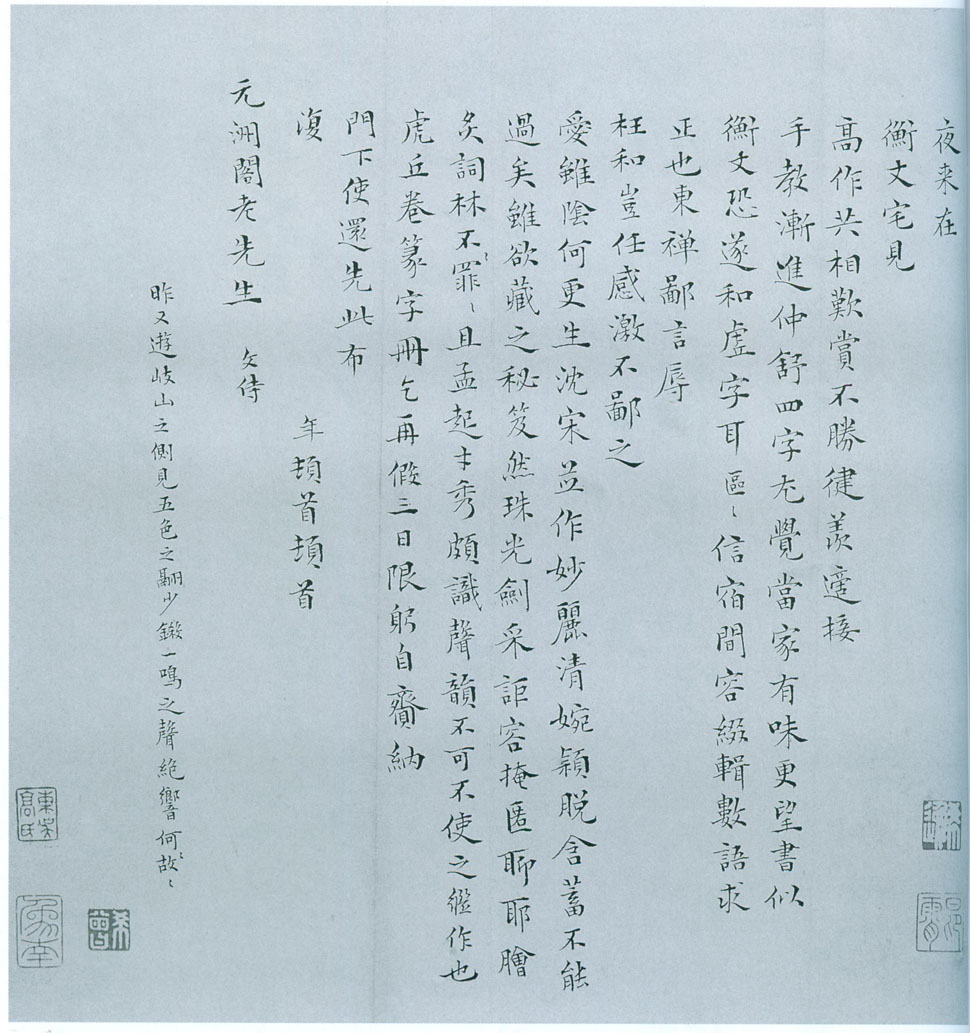 夜来在
衡丈宅見
高作共相歎賞不勝健羨適接
手教漸進仲舒四字尤覺當家有味更望書似
衡丈恐遂和虛字耳區〻信宿間容綴輯數語求
正也東禅鄙言辱
枉和豈任感激不鄙之
愛雖陰何更生沈宋並作妙麗清婉穎脱含蓄不能
過矣雖欲藏之秘笈然珠光劍采詎容掩匿聊耶膾
炙詞林不罪〻且孟起才秀頗識聲韻不可不使之繼作也
虎丘卷篆字冊乞再假三日限躬自齎納
門下使還先此布
復
年頓首頓首
元洲閣老先生 文侍
昨又遊岐山之側見五色之翮少鎩一鳴之聲絶響何故〻
東吳
高氏
希
曾